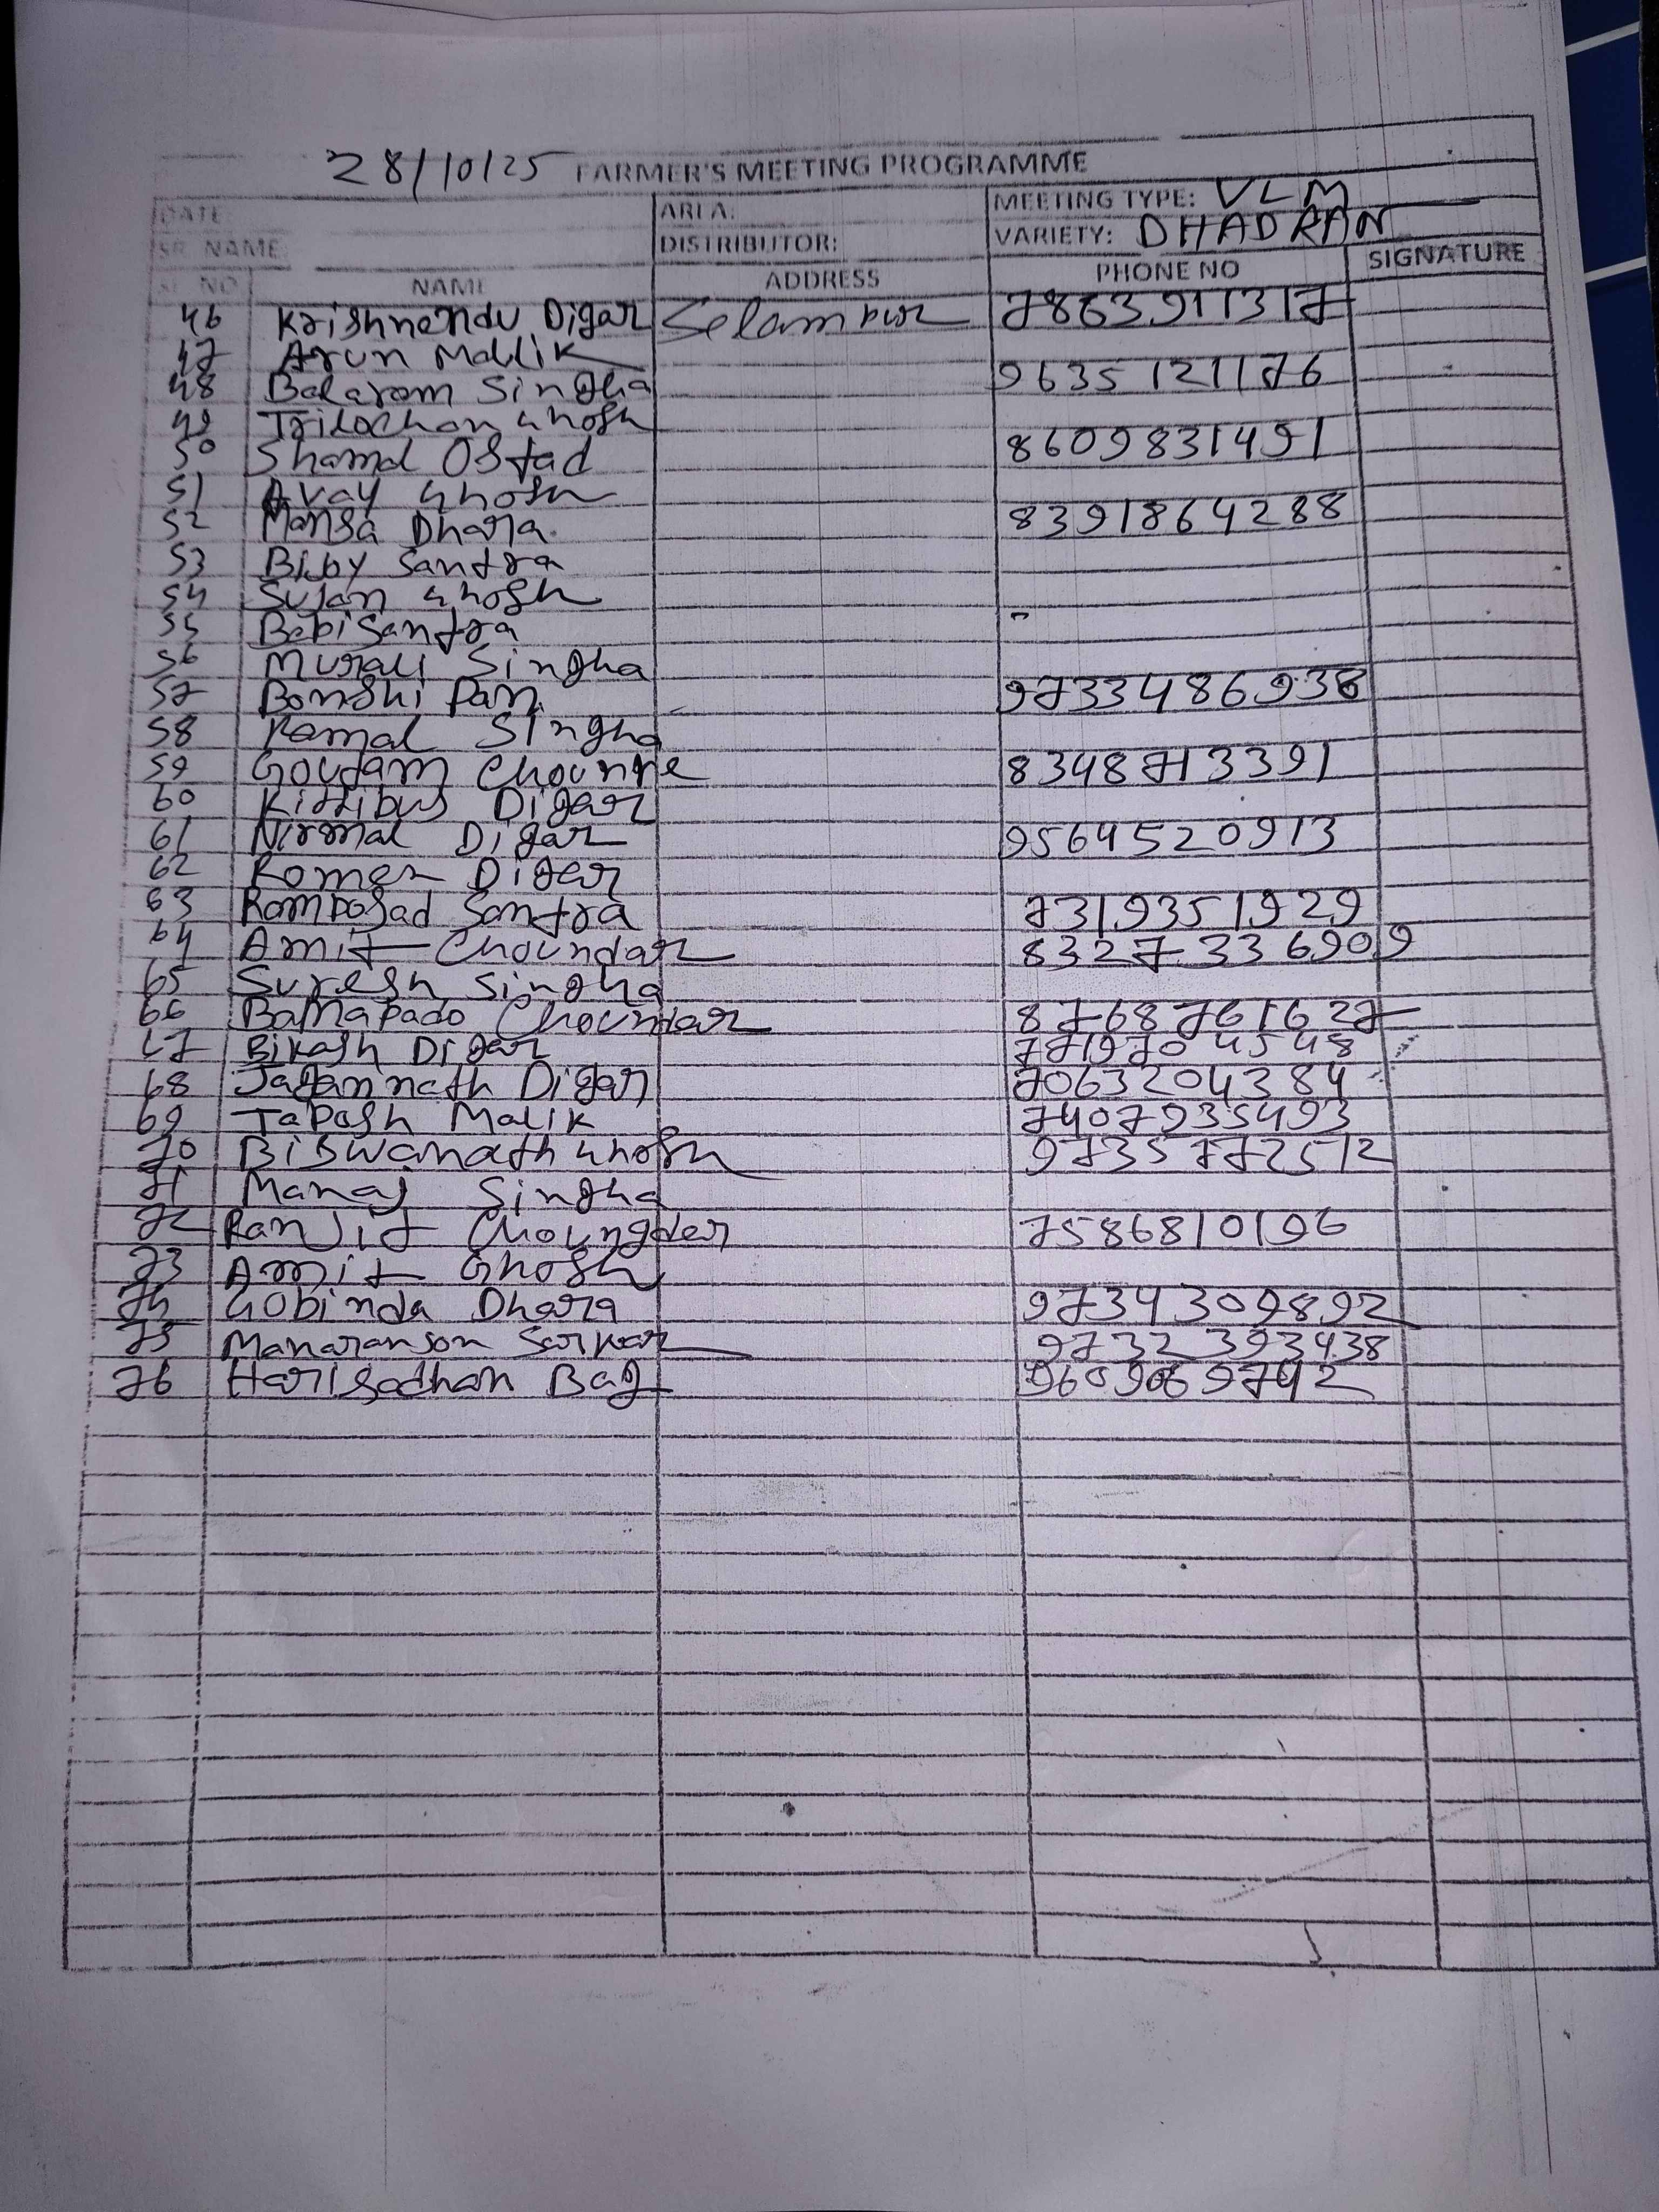 28/10/25 FARMER'S MEETING PROGRAMME
DATE: AREA: MEETING TYPE: VLM
SR. NAME: DISTRIBUTOR: VARIETY: DHADRAN
SL NO NAME ADDRESS PHONE NO SIGNATURE
46 Krishnendu Digar Selampur 7863911317
47 Arun Mallik
48 Balaram Singha 9635121176
49 Trilochan Ghosh
50 Shamal Ostad 8609831491
51 Avay Ghosh
52 Mansa Dhara 8391864288
53 Bijoy Santra
54 Sujan Ghosh
55 Babi Santra
56 Murali Singha
57 Bonshi Pan 9733486938
58 Kamal Singha
59 Goutam Chounre 8348713391
60 Kittibus Digar
61 Nirmal Digar 9564520913
62 Romen Digar
63 Ramposad Santra 7319351929
64 Amit Choundar 8327336909
65 Suresh Singha
66 Bamapado Choundar 8768761627
67 Bikash Digar 7719704548
68 Jagannath Digar 7063204384
69 Tapash Malik 7407935493
70 Biswanath Ghosh 9735772512
71 Manaj Singha
72 Ranjit Choungder 7586810196
73 Amit Ghosh
74 Gobinda Dhara 9734309892
75 Manaranjan Sarkar 9732393438
76 Harisadhan Bag